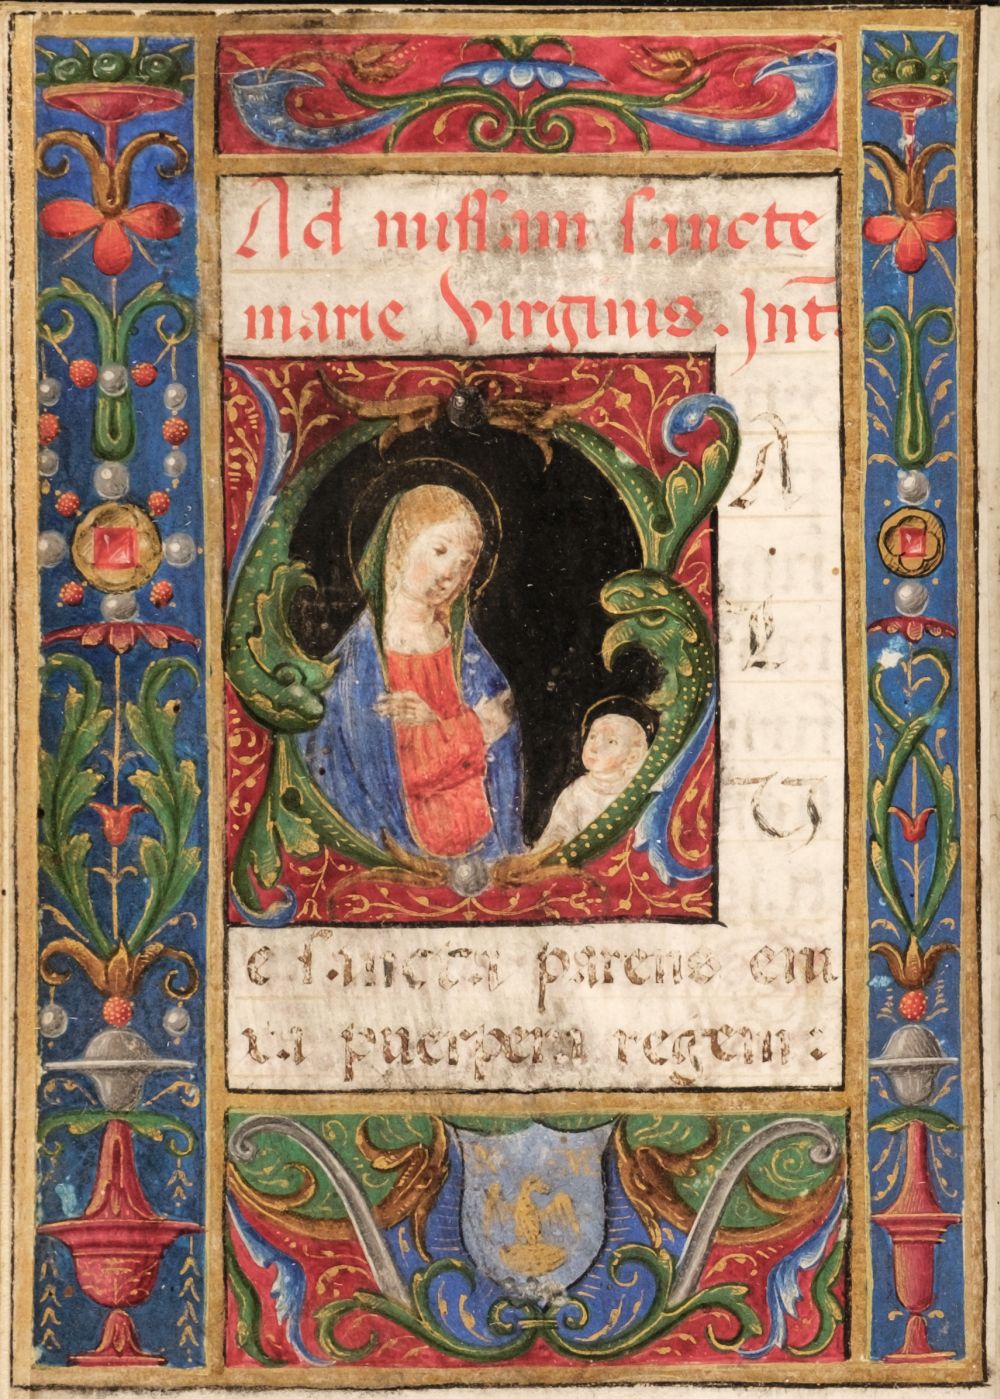 Ad missam sancte
marie virginis. Int̄.
S
A
L
V
e sancta parens eni
xa puerpera regem: